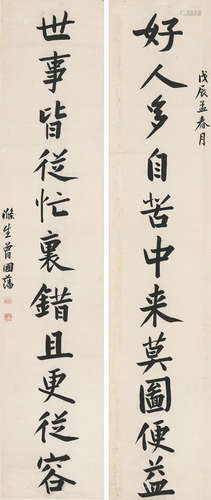 戊辰孟春月
好人多自苦中来莫圖便益
世事皆從忙裏錯且更從容
滌生曾國藩